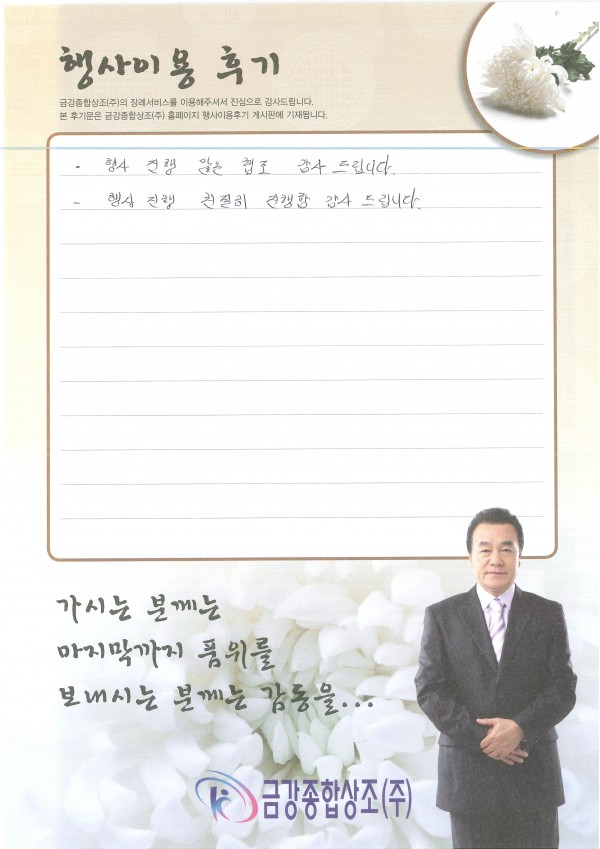 행사이용 후기
금강종합상조(주)의 장례서비스를 이용해주셔서 진심으로 감사드립니다.
본 후기문은 금강종합상조(주) 홈페이지 행사이용후기 게시판에 기재됩니다.
- 행사 진행 많은 협조 감사 드립니다.
- 행사 진행 친절히 진행함 감사 드립니다.
가시는 분께는
마지막까지 품위를
보내시는 분께는 감동을...
금강종합상조(주)